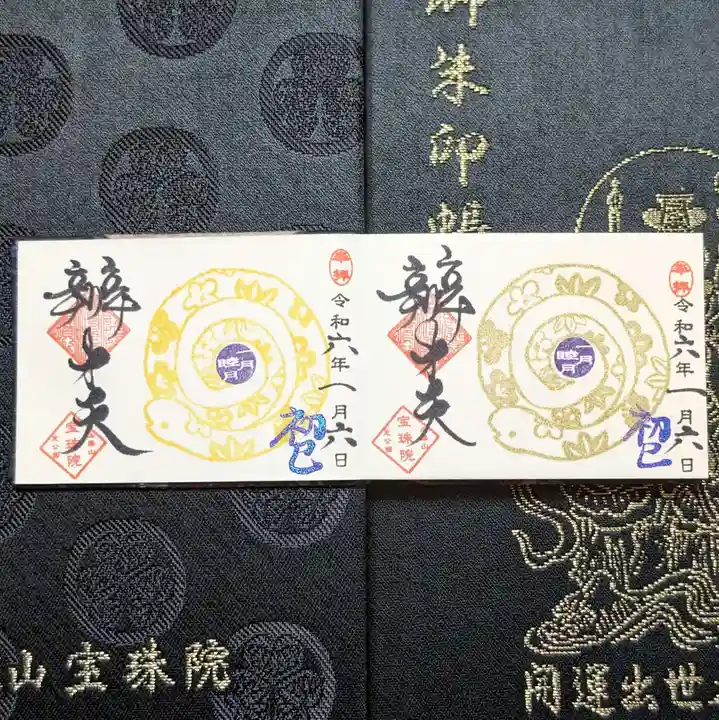 御朱印帳
辨才天
奉拝
令和六年一月六日
一月
睦月
初巳
宝珠院
芝公園
辨才天
奉拝
令和六年一月六日
一月
睦月
初巳
宝珠院
芝公園
山宝珠院
開運出世